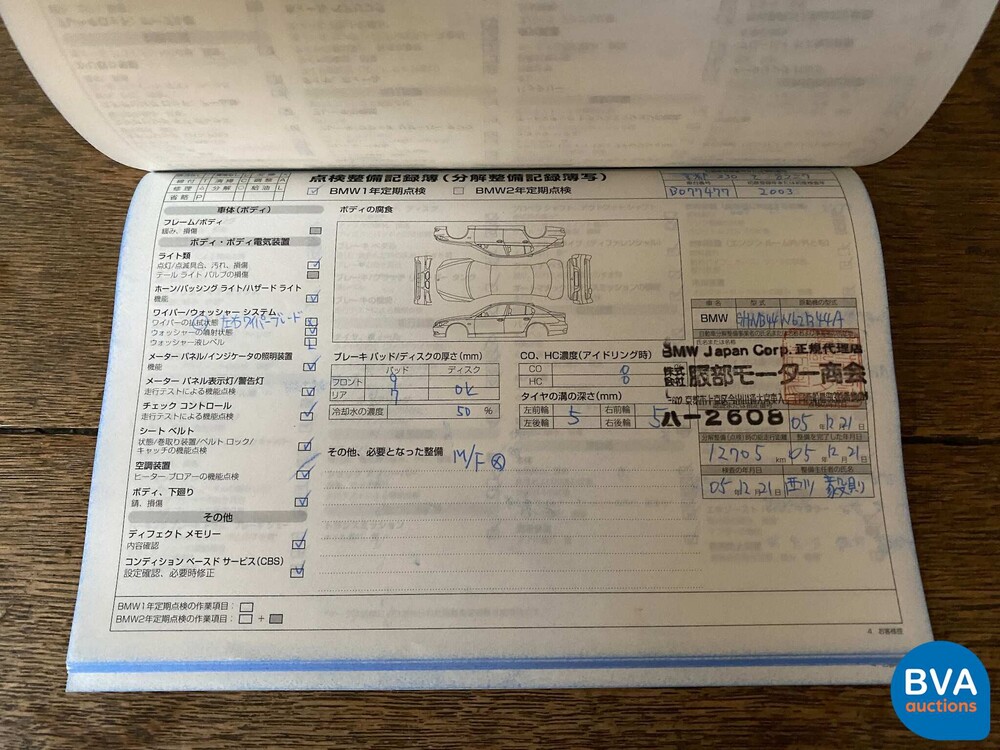 点検整備記録簿(分解整備記録簿写)
修理 A 分解 O 給油 L
省略 P
BMW1年定期点検 BMW2年定期点検
B077477 2003
車体(ボディ)
フレーム/ボディ
緩み、損傷
ボディ・ボディ電気装置
ライト類
点灯/点滅具合、汚れ、損傷
テール ライト バルブの損傷
ホーン/パッシング ライト/ハザード ライト
機能
ワイパー/ウォッシャー システム
ワイパーの払拭状態
ウォッシャーの噴射状態
ウォッシャー液レベル
メーター パネル/インジケータの照明装置
機能
メーター パネル表示灯/警告灯
走行テストによる機能点検
チェック コントロール
走行テストによる機能点検
シート ベルト
状態/巻取り装置/ベルト ロック/
キャッチの機能点検
空調装置
ヒーター ブロアーの機能点検
ボディ、下廻り
錆、損傷
その他
ディフェクト メモリー
内容確認
コンディション ベースド サービス(CBS)
設定確認、必要時修正
ボディの腐食
ブレーキ パッド/ディスクの厚さ(mm)
パッド ディスク
フロント 9
リア 7 OK
冷却水の濃度 50 %
CO、HC濃度(アイドリング時)
CO 0
HC 0
タイヤの溝の深さ(mm)
左前輪 5 右前輪 5
左後輪 右後輪
その他、必要となった整備 M/F ⊗
車名 型式 原動機の型式
BMW GHNB44 N62B44A
氏名または名称
BMW Japan Corp. 正規代理店
株式会社 服部モーター商会
ハ-2608
05年12月21日
12705 km 05年12月21日
点検の年月日 整備主任者の氏名
05年12月21日 西川
BMW1年定期点検の作業項目:
BMW2年定期点検の作業項目: +
4 お客様控
BVA
auctions